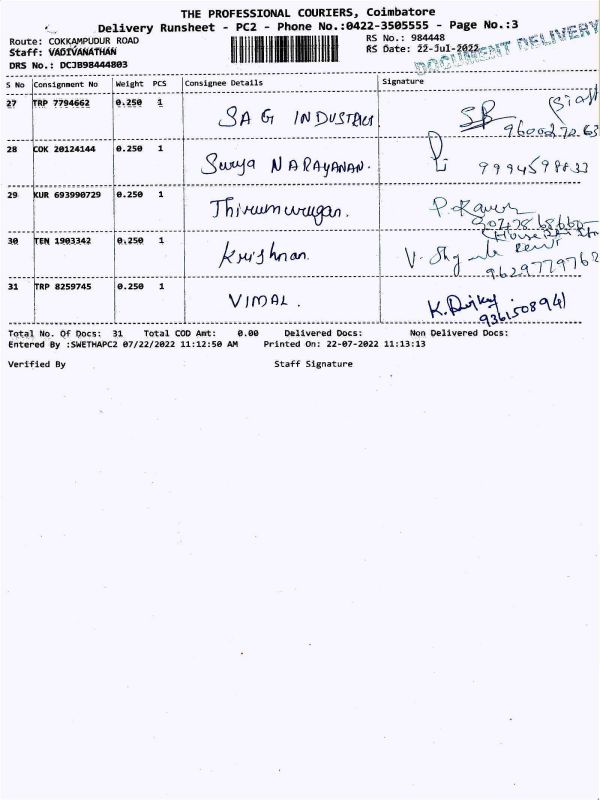 THE PROFESSIONAL COURIERS, Coimbatore
Delivery Runsheet - PC2 - Phone No.:0422-3505555 - Page No.:3
Route: COKKAMPUDUR ROAD RS No.: 984448
Staff: VADIVANATHAN RS Date: 22-Jul-2022
DRS No.: DCJB98444803
DOCUMENT DELIVERY
S No Consignment No Weight PCS Consignee Details Signature
27 TRP 7794662 0.250 1 SAG INDUSTRIES
28 COK 20124144 0.250 1 Surya NARAYANAN.
29 KUR 693990729 0.250 1 Thirumurugan.
30 TEN 1903342 0.250 1 Krishnan.
9629779762
31 TRP 8259745 0.250 1 VIMAL.
9361508941
Total No. Of Docs: 31 Total COD Amt: 0.00 Delivered Docs: Non Delivered Docs:
Entered By :SWETHAPC2 07/22/2022 11:12:50 AM Printed On: 22-07-2022 11:13:13
Verified By Staff Signature